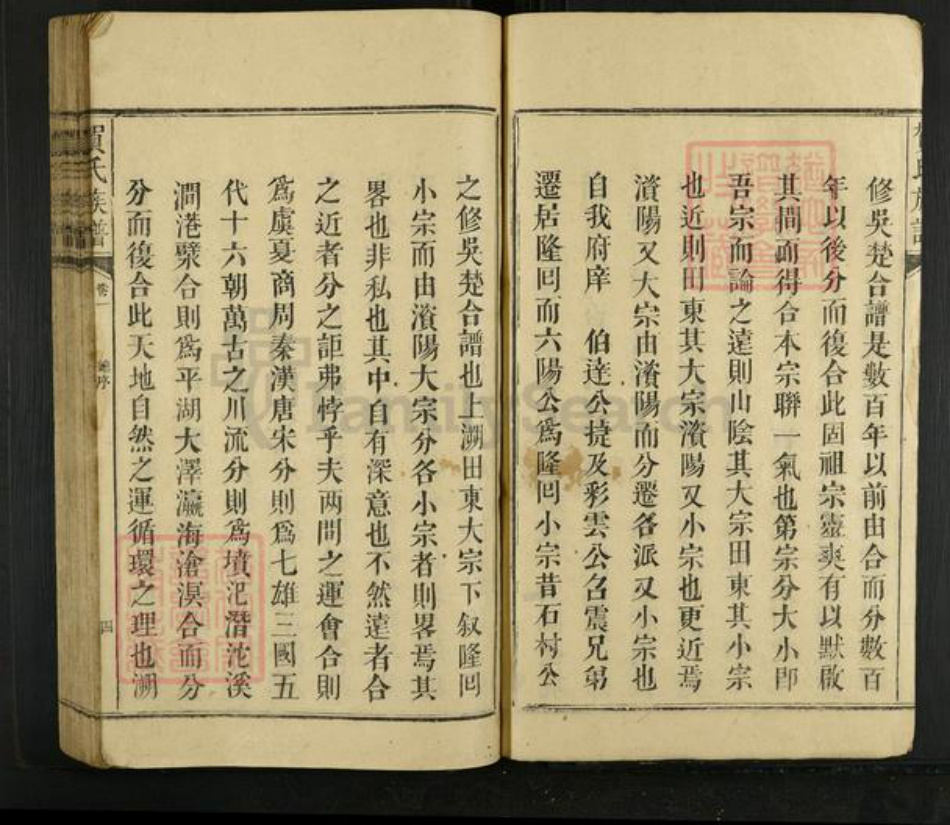 修吳楚合譜是數百年以前由合而分數百
年以後分而復合此固祖宗靈爽有以默啟
其間而得合本宗聯一氣也第宗分大小卽
吾宗而論之遠則山陰其大宗田東其小宗
也近則田東其大宗濱陽又小宗也更近焉
濱陽又大宗由濱陽而分遷各派又小宗也
自我府庠 伯達公㨗及彩雲公名震兄弟
遷居隆囘而六陽公爲隆囘小宗昔石村公
之修吳楚合譜也上溯田東大宗下叙隆囘
小宗而由濱陽大宗分各小宗者則畧焉其
畧也非私也其中自有深意也不然遠者合
之近者分之詎弗悖乎夫两間之運會合則
爲虞夏商周秦漢唐宋分則爲七雄三國五
代十六朝萬古之川流分則爲墳汜潛沱溪
澗港檗合則爲平湖大澤瀛海滄溟合而分
分而復合此天地自然之運循環之理也溯
賀氏族譜
卷一
四
FamilySearch